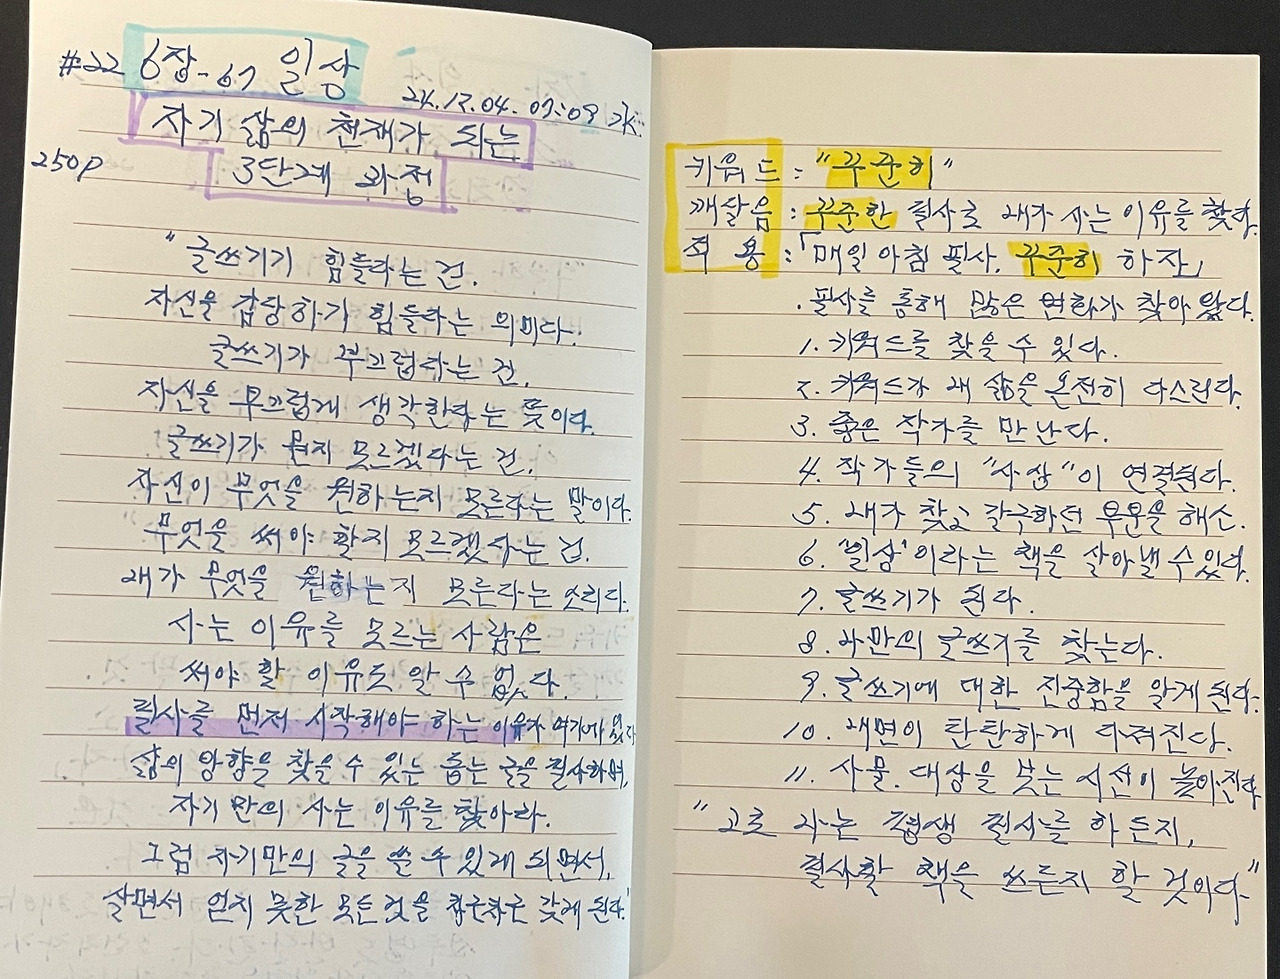 #22 6장-67 일상
24.12.04. 07:09
자기 삶의 천재가 되는
250p 3단계 과정
"글쓰기가 힘들라는 건.
자신을 감당하기 힘들라는 의미다.
글쓰기가 부끄럽다는 건.
자신을 부끄럽게 생각한다는 뜻이다.
글쓰기가 뭔지 모르겠다는 건.
자신이 무엇을 원하는지 모른다는 말이다.
무엇을 써야 할지 모르겠다는 건.
내가 무엇을 원하는지 모른다는 소리다.
사는 이유를 모르는 사람은
써야 할 이유도 알 수 없다.
필사를 먼저 시작해야 하는 이유가 여기에 있다
삶의 방향을 찾을 수 있는 좋은 글을 필사하며,
자기만의 사는 이유를 찾아라.
그럼 자기만의 글을 쓸 수 있게 되면서,
살면서 얻지 못한 모든 것을 갖게 된다."
키워드 : "꾸준히"
깨달음 : 꾸준한 필사로 내가 사는 이유를 찾다.
적용 : 「매일 아침 필사. 꾸준히 하자」
. 필사를 통해 많은 변화가 찾아 왔다.
1. 키워드를 찾을 수 있다.
2. 키워드가 내 삶을 온전히 다스린다.
3. 좋은 작가를 만난다.
4. 작가들의 "사상"이 연결된다.
5. 내가 찾고 갈구하던 부분을 해소.
6. '일상'이라는 책을 살아낼 수 있다.
7. 글쓰기가 된다.
8. 나만의 글쓰기를 찾는다.
9. 글쓰기에 대한 진중함을 알게 된다.
10. 내면이 탄탄하게 다져진다.
11. 사물. 대상을 보는 시선이 높아진다
"고로 나는 평생 필사를 하든지,
필사할 책을 쓰든지 할 것이다"